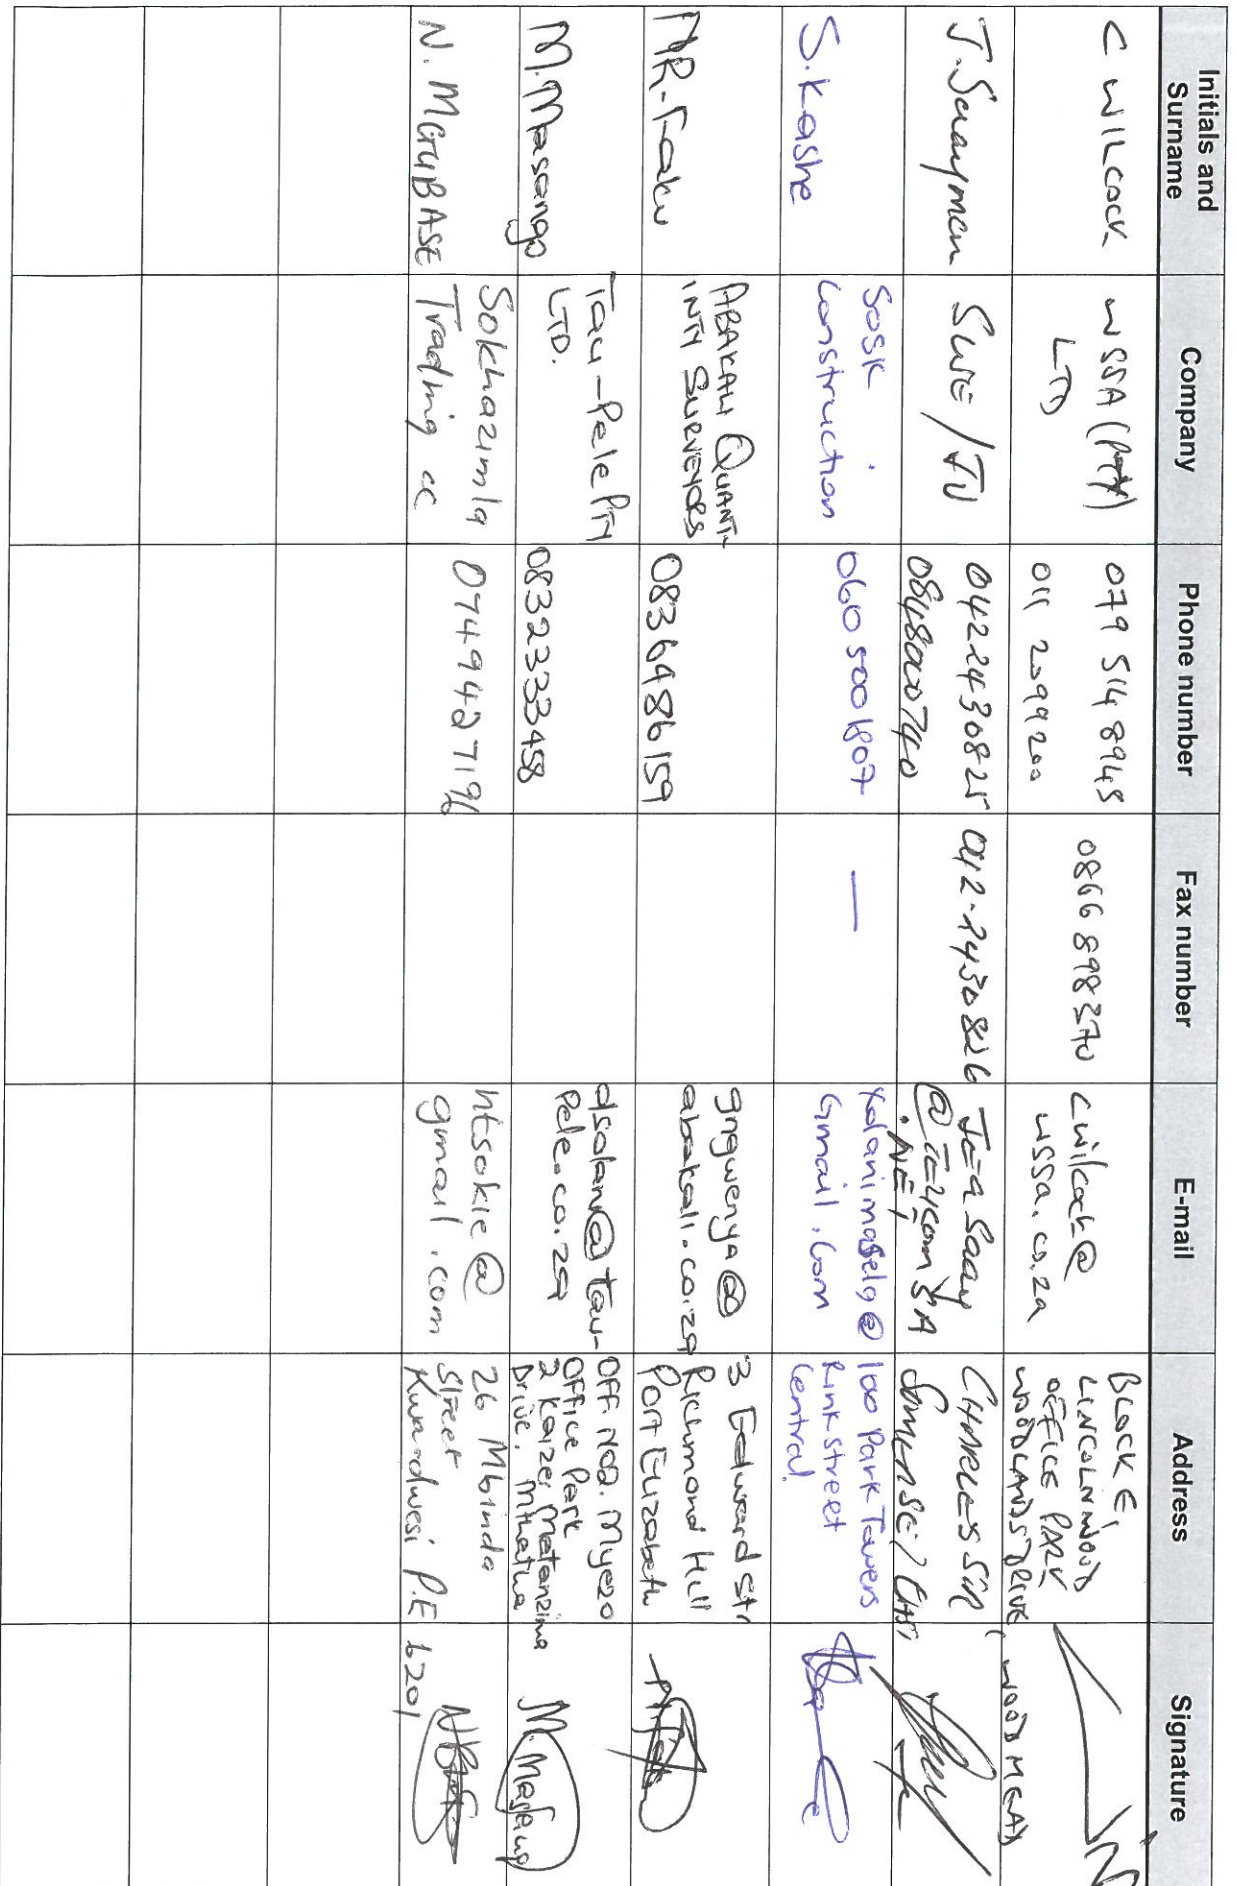 Initials and Surname Company Phone number Fax number E-mail Address Signature
C WILCOCK
WSSA (PTY)
LTD
079 514 8945
011 2099200
0866 898370
cwilcock@
wssa.co.za
BLOCK E,
LINCOLNWOOD
OFFICE PARK
WOODLANDS DRIVE,
WOODMEAD
J. Saayman
SWE/JV
0422430825
0848000740
042-2430826
@
S. Kashe
Sosk
Construction
0605001807
—
Xolanimasela@
Gmail.com
100 Park Towers
Rink street
Central
MR-Faku
ABAKALI QUANT-
INTY SURVEYORS
0836486159
gngwenya@
abakali.co.za
3 Edward str
Richmond Hill
Port Elizabeth
M. Masango
Tau-Pele PTY
LTD.
0832333458
dsolani@tau-
Pele.co.za
OFF No2. Myezo
Office Park
2 Kaizer Matanzima
Drive. Mthatha
N. MGUBASE
Sokhazimla
Trading cc
0749427196
ntsokie@
gmail.com
26 Mbinda
Street
Kwandwesi P.E 6201